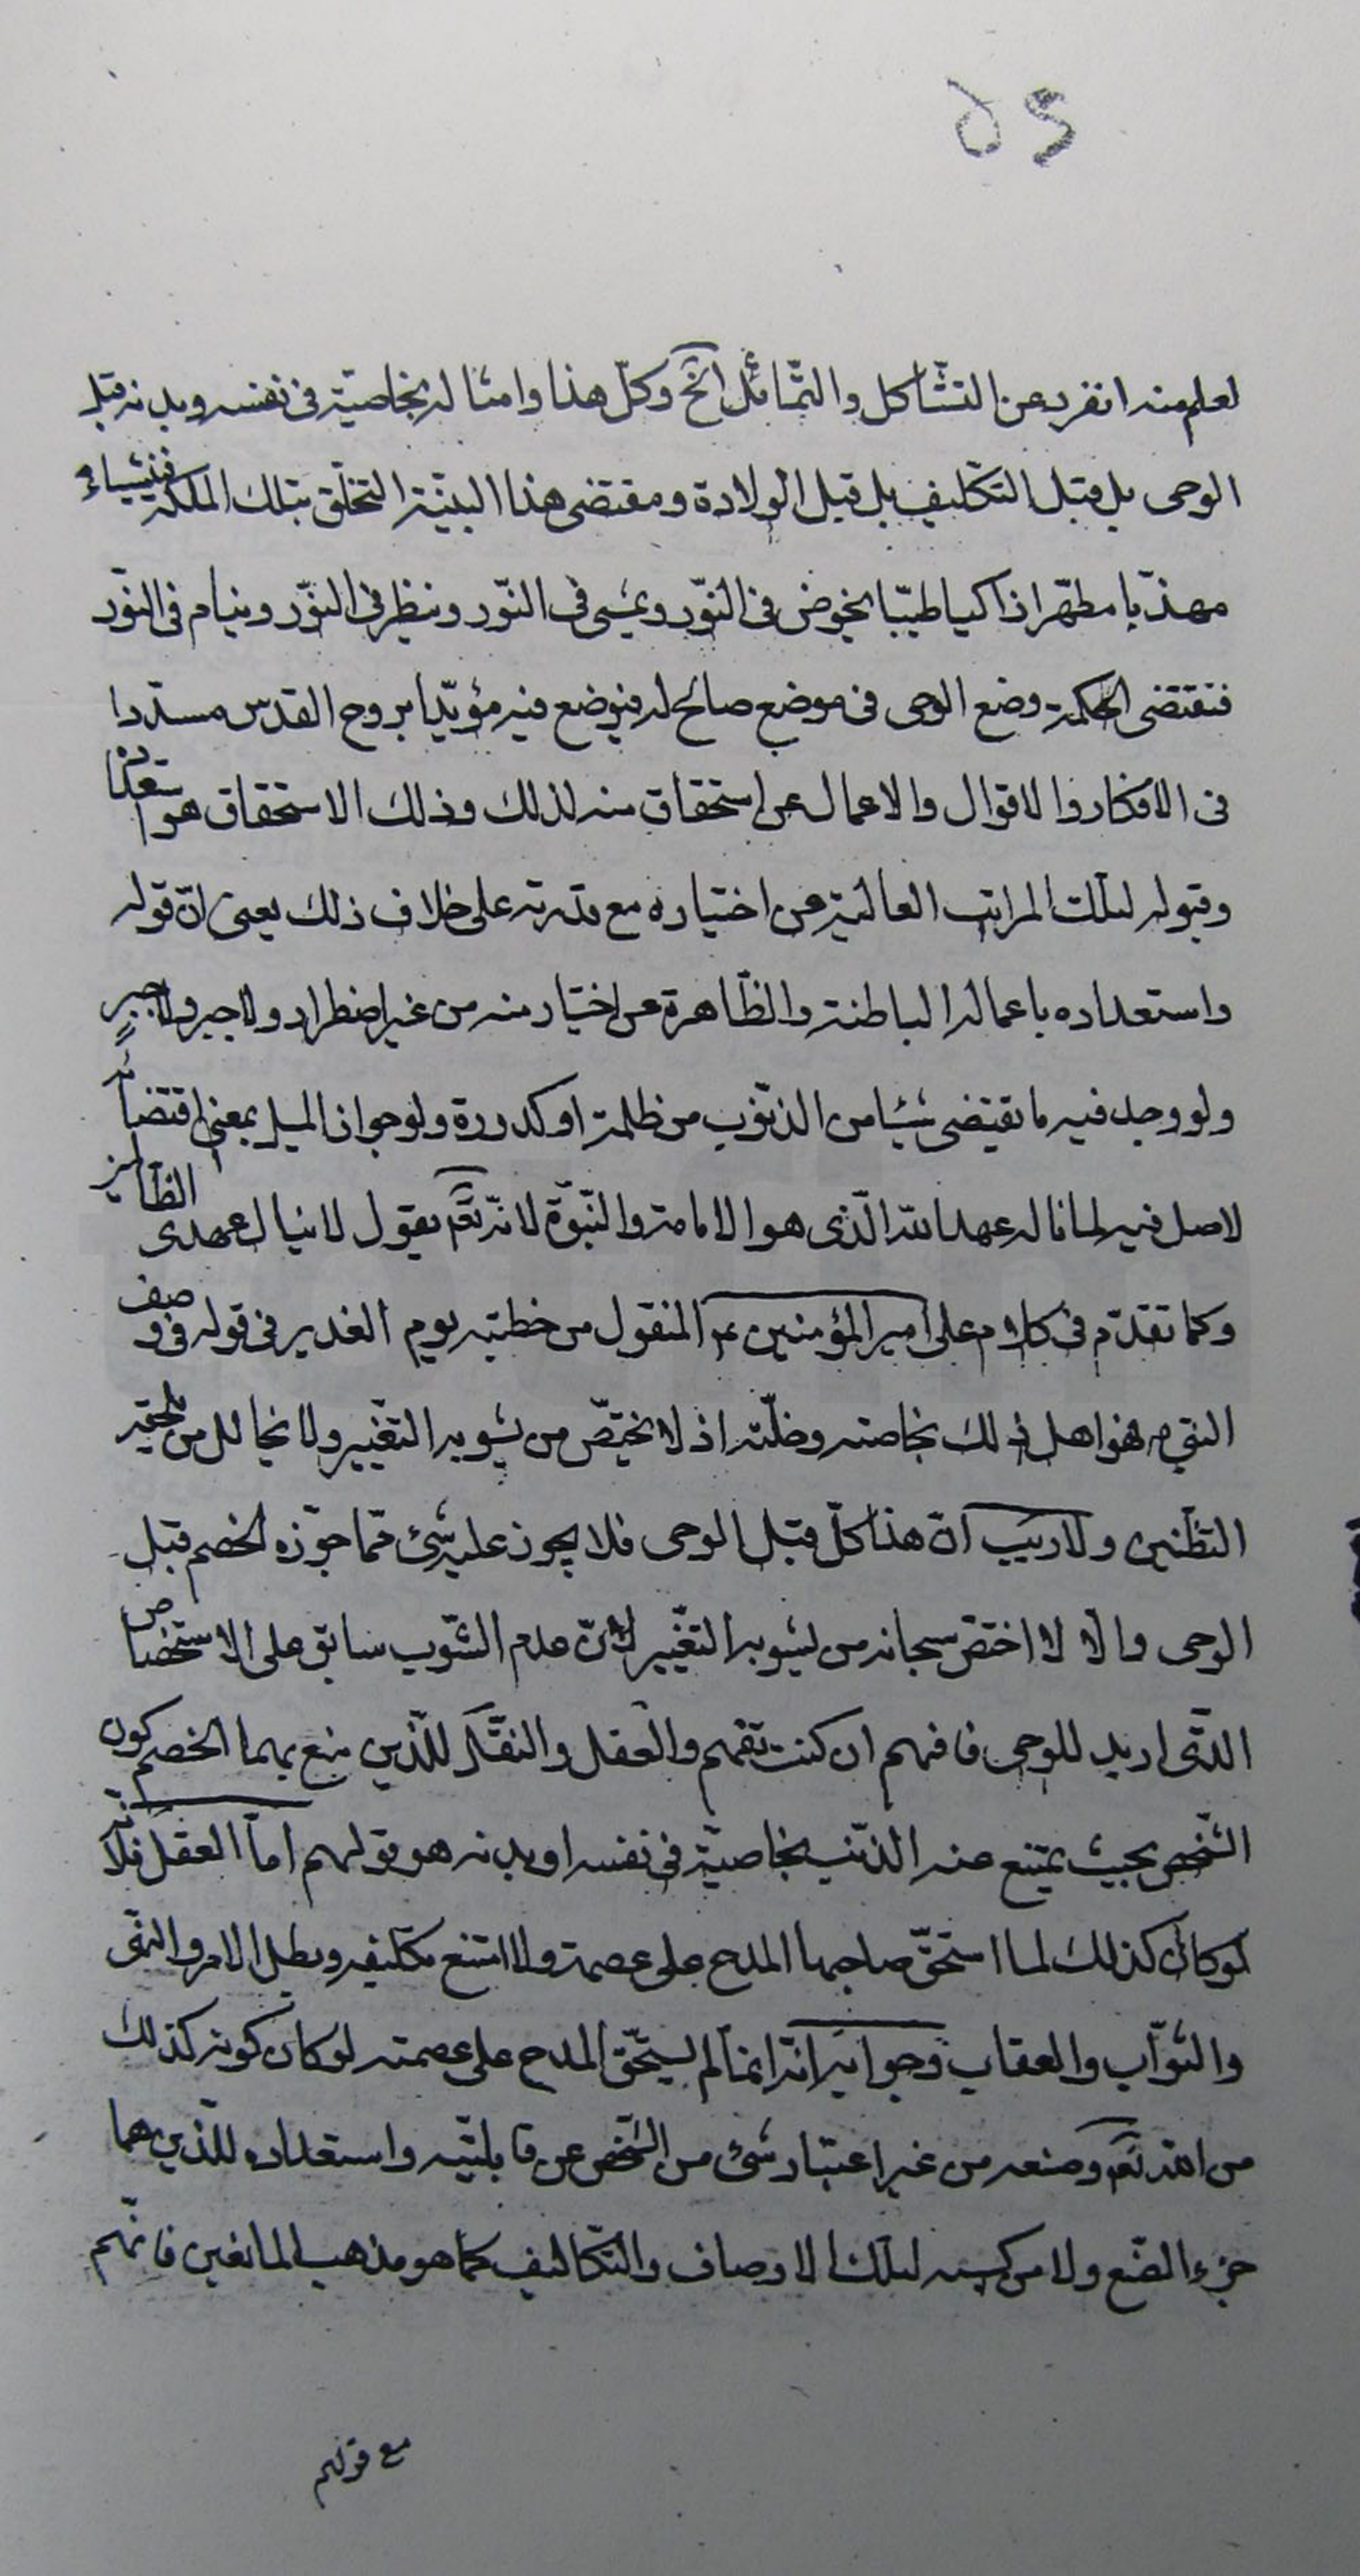 ٥٢
لعلم منه انفرد عن التشّاكل والتّماثل الخ وكلّ هذا وامثاله بخاصيّة فى نفسه وبدنه قبل
الوحى بل قبل التكليف بل قبل الولادة ومقتضى هذا البنيّة التخلّق بتلك الملكة فنشاء
مهذّبا مطهّرا ذاكيا طيبّا يخوض فى النّور ويمشى فى النّور وينظر فى النّور وينام فى النّور
فتقتضى الحكمة وضع الوحى فى موضع صالح له فيوضع فيه مؤيّدا بروح القدس مسدّدا
فى الافكار والاقوال والاعمال عن استحقاق منه لذلك وذلك الاستحقاق هو استعداده
وقبوله لتلك المراتب العالية عن اختياره مع قدرته على خلاف ذلك يعنى انّ قوله
واستعداده باعماله الباطنة والظّاهرة عن اختيار منه من غير اضطرار ولا جبر ولا جبر
ولو وجد فيه ما يقتضى شيئا من الذنّوب من ظلمة او كدورة ولو جواز الميل بمعنى اقتضائه
لاصل فيه لما ناله عهد الله الّذى هو الامامة والنّبوّة لانّه تعّم يقول لا ينال عهدى الظّالمين
وكما تقدّم فى كلام على امير المؤمنين عم المنقول من خطبته يوم الغدير فى قوله فى وصف
النبى ص فهو اهل ذلك بخاصته وخلّته اذ لا يختصّ من يشوبه التغّيير ولا يخالل من يلحقه
التظنين ولا ريب انّ هذا كلّ قبل الوحى فلا يجوز عليه شئ ممّا جوّزه الخصم قبل
الوحى والّا لا اختصّ سبحانه من يشوبه التغّيير لانّ عدم الشّوب سابق على الاستخصاص
الّتى اريد للوحى فافهم ان كنت تفهم والعقل والنقّل للّذين منع بهما الخصم كون
الشّخص بحيث يمتنع عنه الذنّب بخاصيّة فى نفسه او بدنه هو قولهم امّا العقل فلانّه
لو كان كذلك لما استحقّ صاحبها المدح على عصمة ولا امتنع تكليفه وبطل الامر والنّهى
والثّواب والعقاب وجوابه انّه انّما لم يستحّق المدح على عصمته لو كان كونه كذلك
من الله تعّم وصنعه من غير اعتبار شئ من الشّخص عن قابليّته واستعداده للّذين هما
جزء الصّنع ولا من كسبه لتلك الاوصاف والتّكاليف كما هو مذهب المانعين فانّهم
مع قولهم